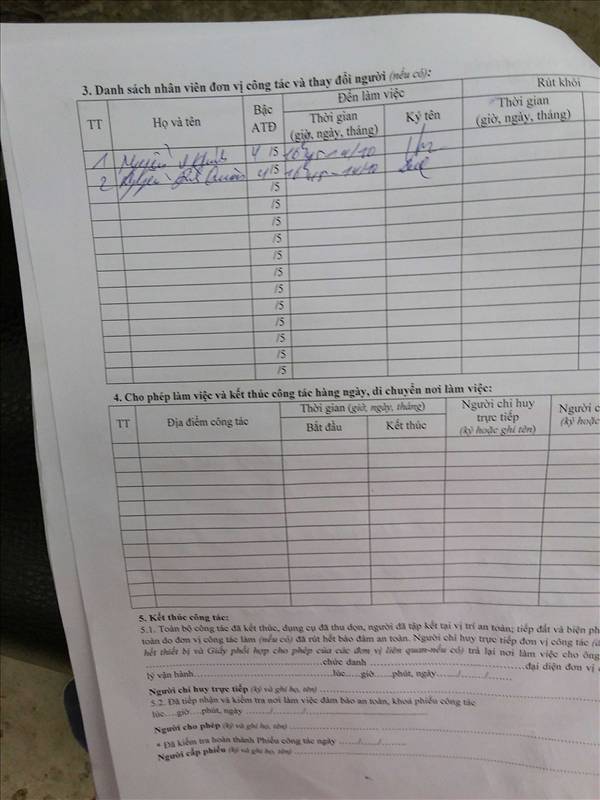 3. Danh sách nhân viên đơn vị công tác và thay đổi người (nếu có):
TT
Họ và tên
Bậc ATĐ
Đến làm việc
Rút khỏi
Thời gian (giờ, ngày, tháng)
Ký tên
Thời gian (giờ, ngày, tháng)
1 Nguyễn 4 /5
2 Nguyễn 4 /5
/5
/5
/5
/5
/5
/5
/5
/5
/5
/5
/5
/5
4. Cho phép làm việc và kết thúc công tác hàng ngày, di chuyển nơi làm việc:
TT
Địa điểm công tác
Thời gian (giờ, ngày, tháng)
Người chỉ huy trực tiếp (ký hoặc ghi tên)
Người c
(ký hoặc
Bắt đầu
Kết thúc
5. Kết thúc công tác:
5.1. Toàn bộ công tác đã kết thúc, dụng cụ đã thu dọn, người đã tập kết tại vị trí an toàn; tiếp đất và biện ph
toàn do đơn vị công tác làm (nếu có) đã rút hết bảo đảm an toàn. Người chỉ huy trực tiếp đơn vị công tác
hết thiết bị và Giấy phối hợp cho phép của các đơn vị liên quan-nếu có) trả lại nơi làm việc cho ông
chức danh đại diện đơn vị
lý vận hành lúc.....giờ.....phút, ngày ....../....../......
Người chỉ huy trực tiếp (ký và ghi họ, tên)
5.2. Đã tiếp nhận và kiểm tra nơi làm việc đảm bảo an toàn, khoá phiếu công tác
lúc.....giờ.....phút, ngày ....../....../......
Người cho phép (ký và ghi họ, tên)
* Đã kiểm tra hoàn thành Phiếu công tác ngày ....../....../......
Người cấp phiếu (ký và ghi họ, tên)